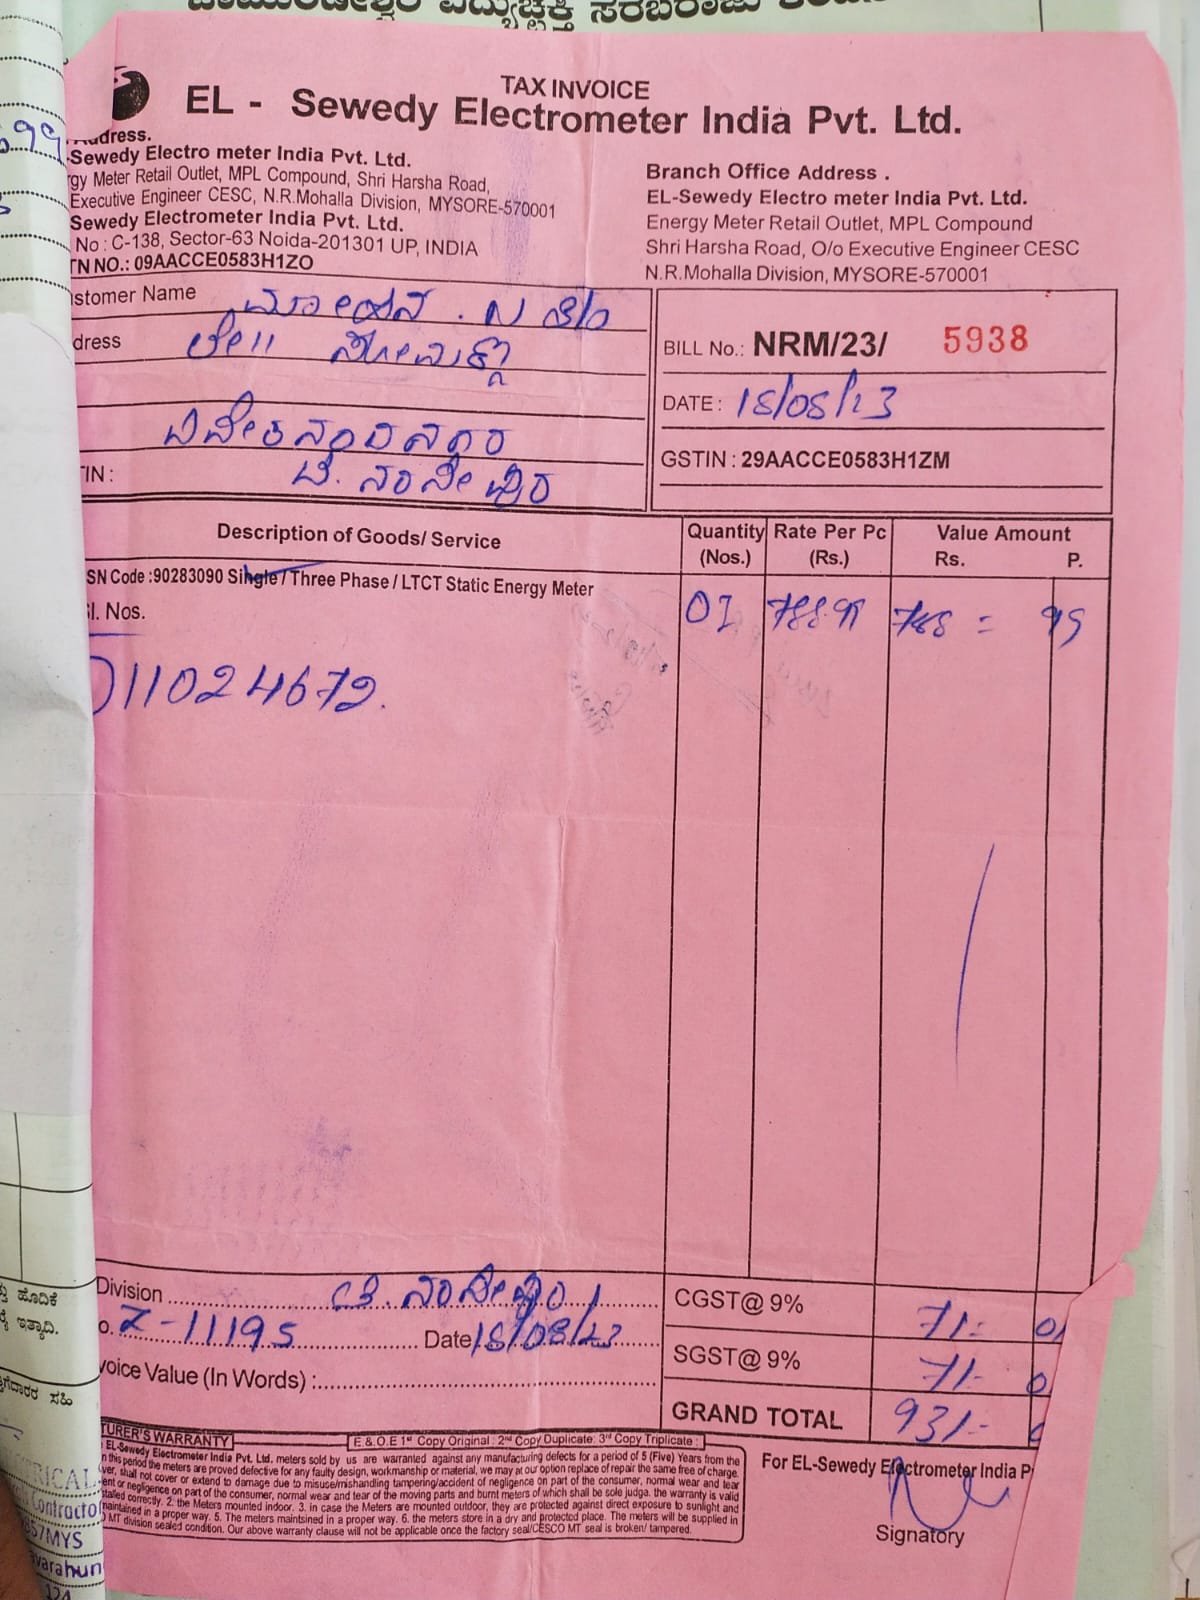 TAX INVOICE
EL - Sewedy Electrometer India Pvt. Ltd.
Address.
-Sewedy Electro meter India Pvt. Ltd.
gy Meter Retail Outlet, MPL Compound, Shri Harsha Road,
Executive Engineer CESC, N.R.Mohalla Division, MYSORE-570001
Sewedy Electrometer India Pvt. Ltd.
No : C-138, Sector-63 Noida-201301 UP, INDIA
TN NO.: 09AACCE0583H1ZO
Branch Office Address .
EL-Sewedy Electro meter India Pvt. Ltd.
Energy Meter Retail Outlet, MPL Compound
Shri Harsha Road, O/o Executive Engineer CESC
N.R.Mohalla Division, MYSORE-570001
stomer Name
dress
ವಿವೇಕಾನಂದನಗರ
TIN : ಟಿ. ನರಸೀಪುರ
BILL No.: NRM/23/ 5938
DATE : 18/08/23
GSTIN : 29AACCE0583H1ZM
Description of Goods/ Service Quantity (Nos.) Rate Per Pc (Rs.) Value Amount Rs. P.
SN Code :90283090 Single / Three Phase / LTCT Static Energy Meter
Sl. Nos. 01 788.95 788 = 95
11024672.
Division ಟಿ. ನರಸೀಪುರ
o. Z-11195 Date 18/08/23
voice Value (In Words) :
CGST@ 9% 71-
SGST@ 9% 71-
GRAND TOTAL 931-
TURER'S WARRANTY
E.& O.E 1st Copy Original : 2nd Copy Duplicate: 3rd Copy Triplicate :
EL-Sewedy Electrometer India Pvt. Ltd. meters sold by us are warranted against any manufacturing defects for a period of 5 (Five) Years from the
n this period the meters are proved defective for any faulty design, workmanship or material, we may at our option replace of repair the same free of charge.
ver, shall not cover or extend to damage due to misuse/mishandling tampering/accident of negligence on part of the consumer, normal wear and tear
ent or negligence on part of the consumer, normal wear and tear of the moving parts and burnt meters of which shall be sole judge. the warranty is valid
stalled correctly. 2. the Meters mounted indoor. 3. in case the Meters are mounted outdoor, they are protected against direct exposure to sunlight and
maintained in a proper way. 5. The meters maintsined in a proper way. 6. the meters store in a dry and protected place. The meters will be supplied in
MT division sealed condition. Our above warranty clause will not be applicable once the factory seal/CESCO MT seal is broken/ tampered.
For EL-Sewedy Electrometer India P
Signatory
ಹೊದಿಕೆ
ಇತ್ಯಾದಿ.
ಸಹಿ
RICAL
Contracto
/MYS